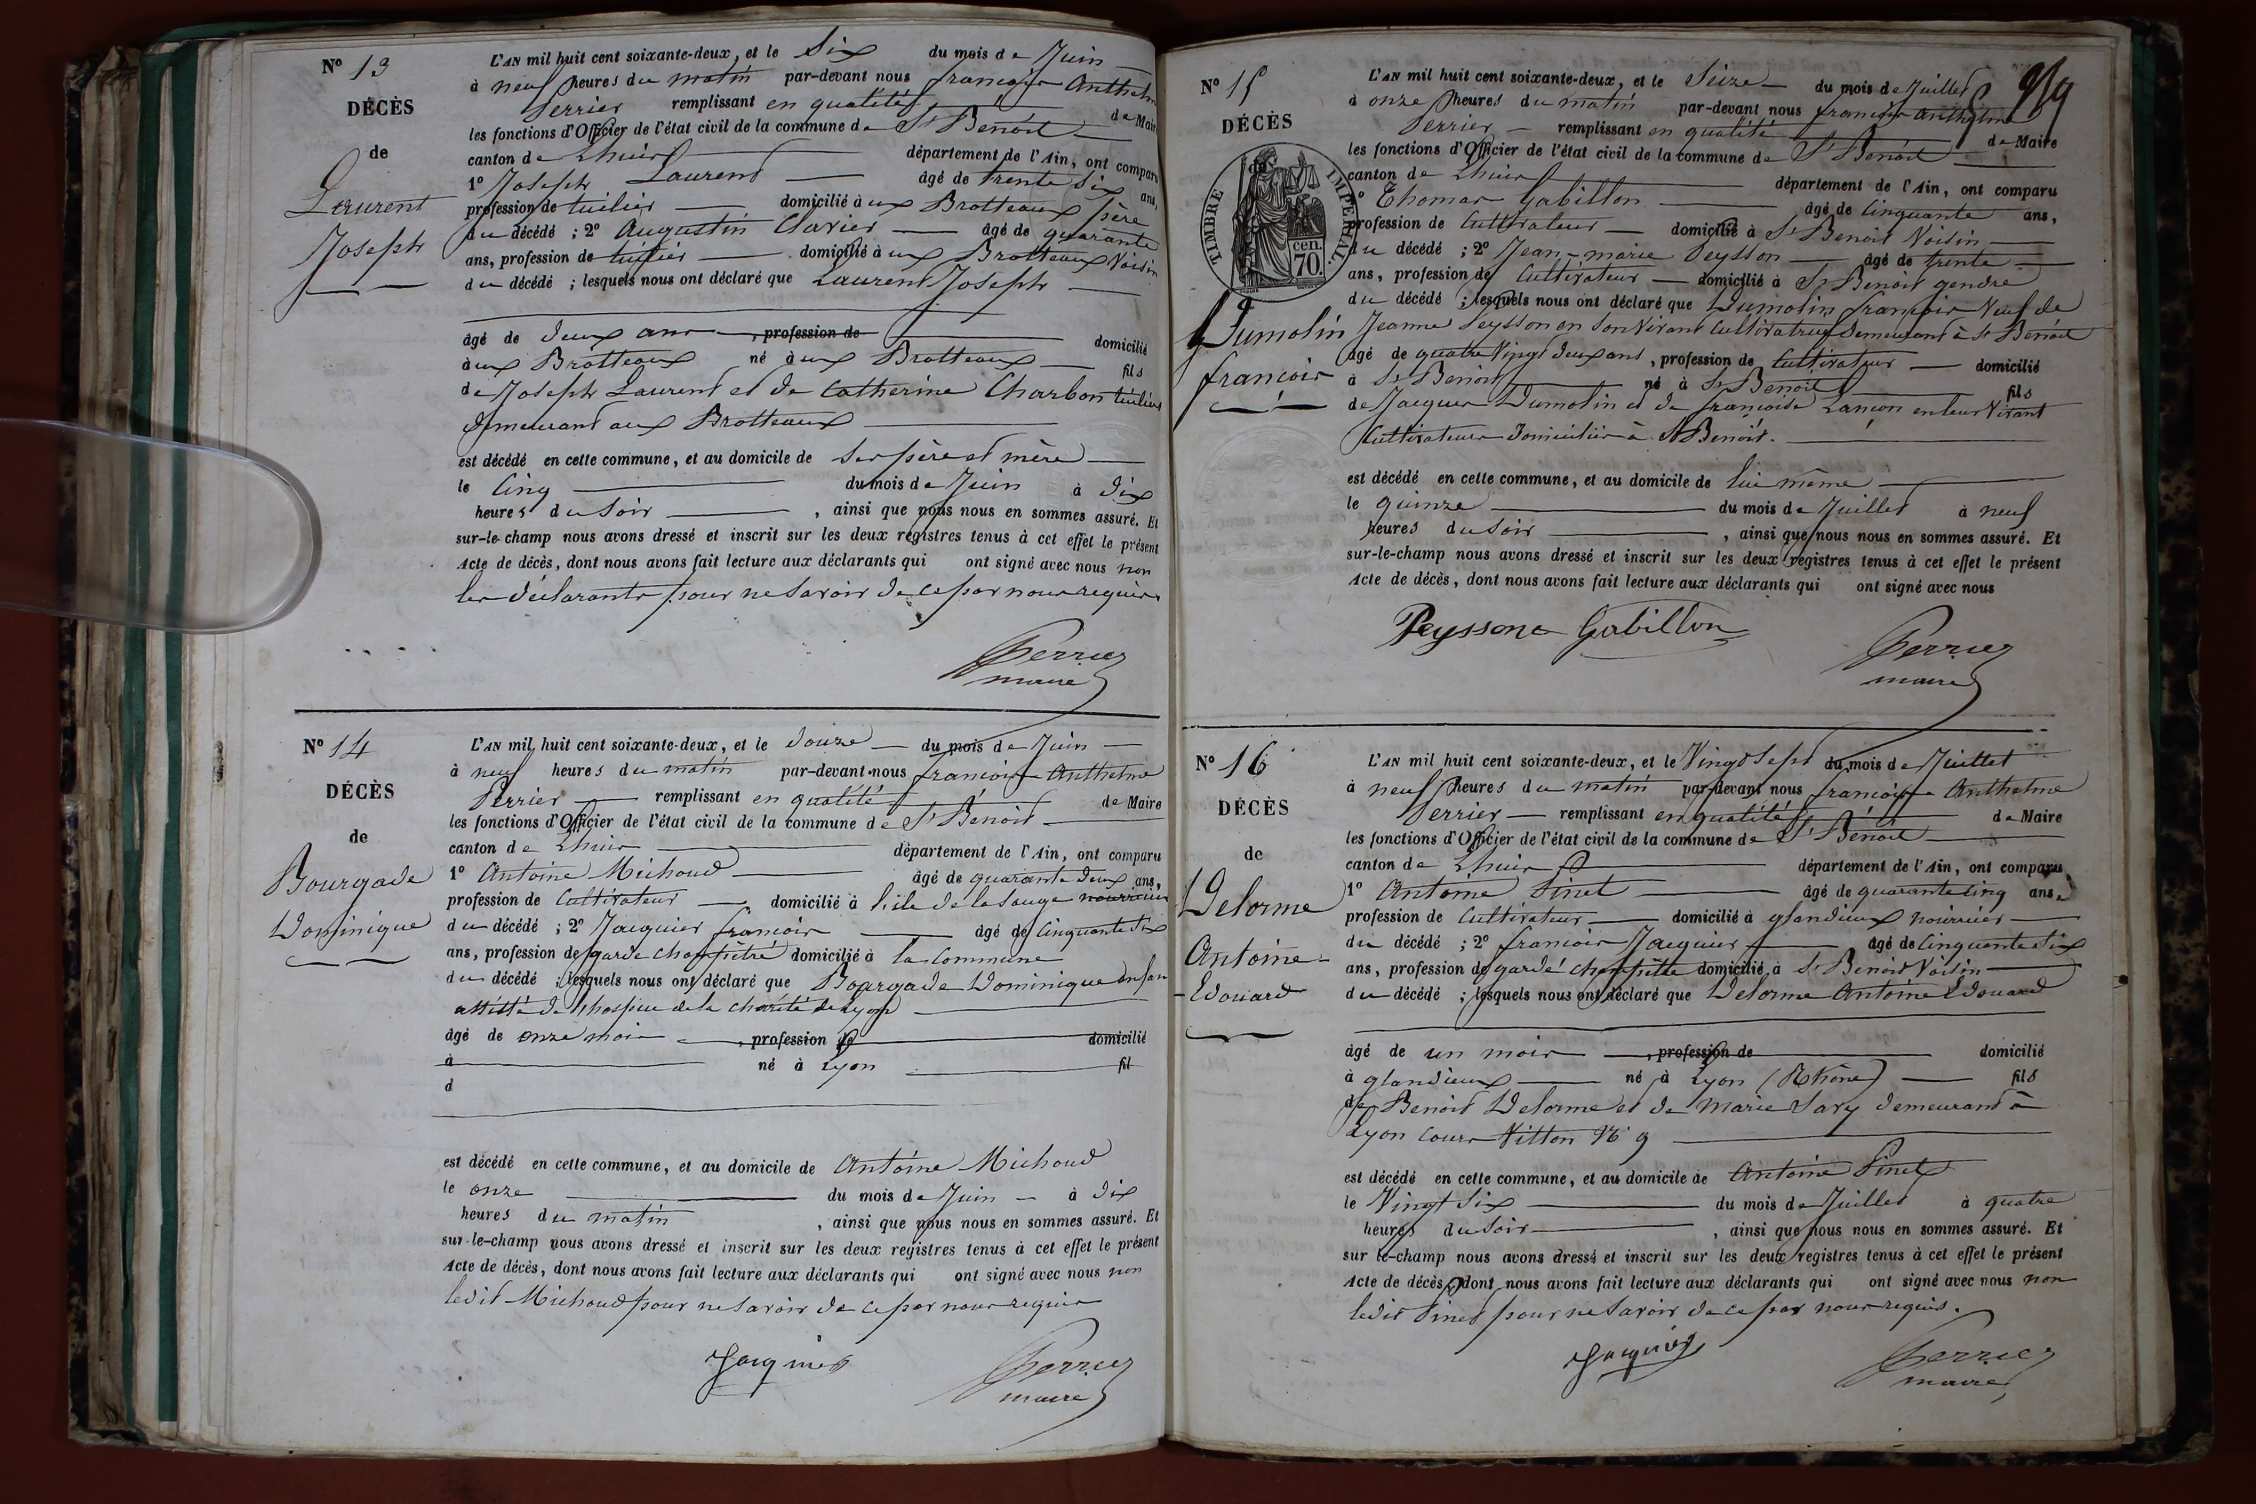 N° 13
DÉCÈS
de
Laurent
Joseph
L'AN mil huit cent soixante-deux, et le Six du mois de Juin
à neuf heures du matin par-devant nous françois Anthelme
Perrier remplissant en qualité de Maire
les fonctions d'Officier de l'état civil de la commune de St Benoit
canton de Lhuis département de l'Ain, ont comparu
1° Joseph Laurent âgé de trente six ans,
profession de tuilier domicilié à ux Brotteaux père
du décédé ; 2° Augustin Clavier âgé de quarante
ans, profession de tuilier domicilié à ux Brotteaux Voisin
du décédé ; lesquels nous ont déclaré que Laurent Joseph
âgé de deux ans , profession de domicilié
à ux Brotteaux né à ux Brotteaux fils
de Joseph Laurent et de Catherine Charbon tuiliers
demeurant aux Brotteaux
est décédé en cette commune, et au domicile de Ses père et mère
le Cinq du mois de Juin à dix
heures du Soir , ainsi que nous nous en sommes assuré. Et
sur-le-champ nous avons dressé et inscrit sur les deux registres tenus à cet effet le présent
Acte de décès, dont nous avons fait lecture aux déclarants qui ont signé avec nous non
les déclarants pour ne Savoir de ce par nous requis
Perrier
maire
N° 14
DÉCÈS
de
Bourgade
Dominique
L'AN mil huit cent soixante-deux, et le douze du mois de Juin
à neuf heures du matin par-devant nous françois Anthelme
Perrier remplissant en qualité de Maire
les fonctions d'Officier de l'état civil de la commune de St Benoit
canton de Lhuis département de l'Ain, ont comparu
1° Antoine Michoud âgé de quarante deux ans,
profession de Cultivateur domicilié à l'isle de la Sauge nourricier
du décédé ; 2° Jacquier françois âgé de Cinquante Six
ans, profession de garde champêtre domicilié à la Commune
du décédé ; lesquels nous ont déclaré que Bourgade Dominique enfan
assisté de l'hospice de la charité de Lyon
âgé de onze mois , profession de domicilié
à né à Lyon fil
d
est décédé en cette commune, et au domicile de Antoine Michoud
le onze du mois de Juin à dix
heures du matin , ainsi que nous nous en sommes assuré. Et
sur-le-champ nous avons dressé et inscrit sur les deux registres tenus à cet effet le présent
Acte de décès, dont nous avons fait lecture aux déclarants qui ont signé avec nous non
ledit Michoud pour ne Savoir de ce par nous requis
Jacquier
Perrier
maire
N° 15
DÉCÈS
de
TIMBRE IMPÉRIAL.
cen.
70.
Dumolin
françois
249
L'AN mil huit cent soixante-deux, et le Seize du mois de Juillet
à onze heures du matin par-devant nous françois Anthelme
Perrier remplissant en qualité de Maire
les fonctions d'Officier de l'état civil de la commune de St Benoit
canton de Lhuis département de l'Ain, ont comparu
1° Thomas Gabillon âgé de Cinquante ans,
profession de Cultivateur domicilié à St Benoit Voisin
du décédé ; 2° Jean-marie Peysson âgé de trente
ans, profession de Cultivateur domicilié à St Benoit gendre
du décédé ; lesquels nous ont déclaré que Dumolin françois Veuf de
Jeanne Peysson en Son Vivant Cultivatrice demeurant à St Benoit
âgé de quatre Vingt deux ans , profession de Cultivateur domicilié
à St Benoit né à St Benoit fils
de Jacques Dumolin et de françoise Lançon en leur Vivant
Cultivateurs domiciliés à St Benoit.
est décédé en cette commune, et au domicile de lui même
le quinze du mois de Juillet à neuf
heures du Soir , ainsi que nous nous en sommes assuré. Et
sur-le-champ nous avons dressé et inscrit sur les deux registres tenus à cet effet le présent
Acte de décès, dont nous avons fait lecture aux déclarants qui ont signé avec nous
Peysson Gabillon
Perrier
maire
N° 16
DÉCÈS
de
Delorme
Antoine-
-Edouard
L'AN mil huit cent soixante-deux, et le Vingt Sept du mois de Juillet
à neuf heures du matin par-devant nous françois Anthelme
Perrier remplissant en qualité de Maire
les fonctions d'Officier de l'état civil de la commune de St Benoit
canton de Lhuis département de l'Ain, ont comparu
1° Antoine Pinet âgé de quarante Cinq ans,
profession de Cultivateur domicilié à glandieux nourricier
du décédé ; 2° françois Jacquier âgé de Cinquante Six
ans, profession de garde champêtre domicilié à St Benoit Voisin
du décédé ; lesquels nous ont déclaré que Delorme Antoine Edouard
âgé de un mois , profession de domicilié
à glandieux né à Lyon (Rhône) fils
de Benoit Delorme et de Marie Sary demeurant à
Lyon Cours Vitton N° 9
est décédé en cette commune, et au domicile de Antoine Pinet
le Vingt Six du mois de Juillet à quatre
heures du Soir , ainsi que nous nous en sommes assuré. Et
sur le-champ nous avons dressé et inscrit sur les deux registres tenus à cet effet le présent
Acte de décès, dont nous avons fait lecture aux déclarants qui ont signé avec nous non
ledit Pinet pour ne Savoir de ce par nous requis.
Jacquier
Perrier
maire